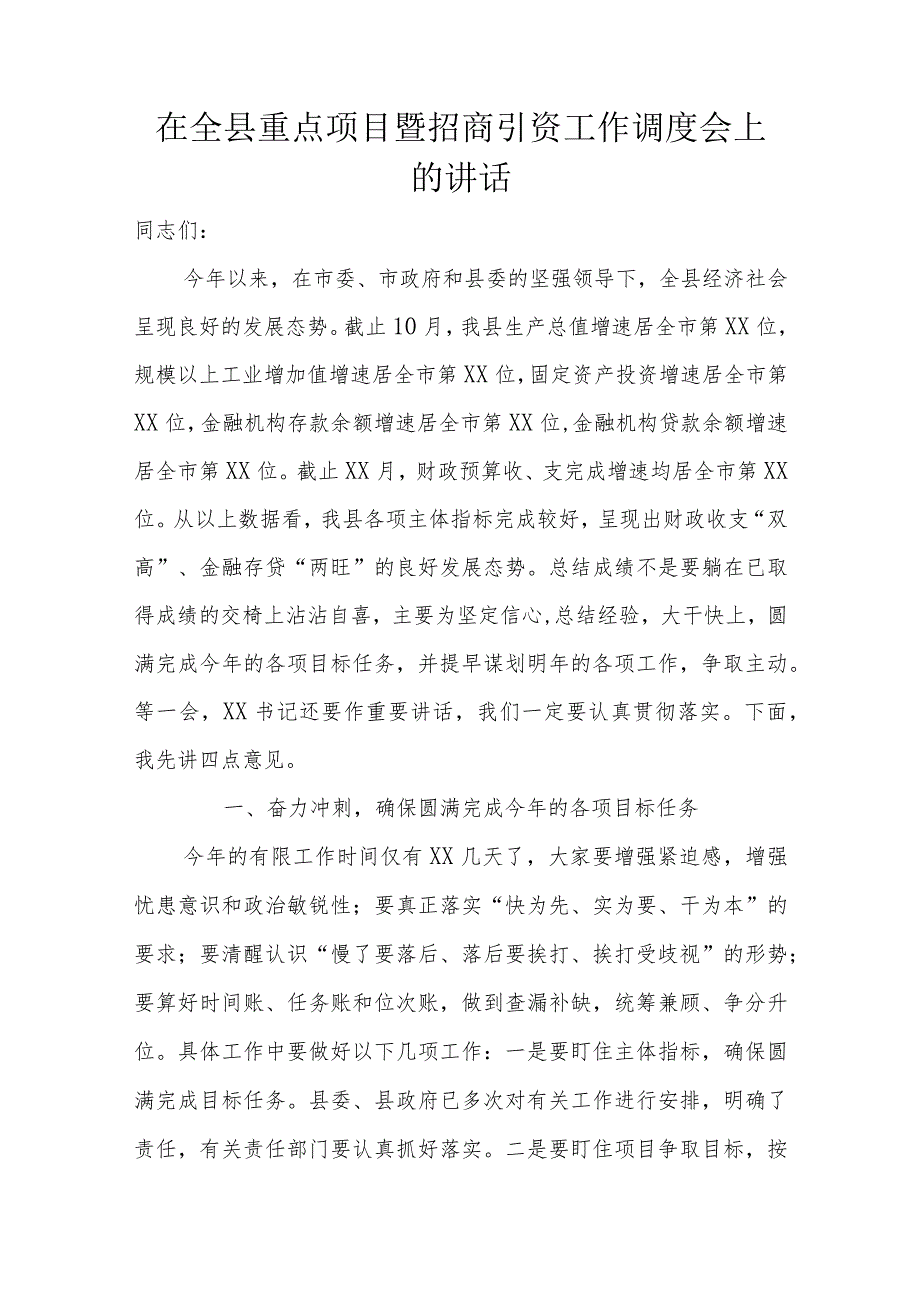 在全县重点项目暨招商引资工作调度会上
的讲话
同志们：
今年以来，在市委、市政府和县委的坚强领导下，全县经济社会
呈现良好的发展态势。截止10月，我县生产总值增速居全市第XX位，
规模以上工业增加值增速居全市第XX位,固定资产投资增速居全市第
XX位，金融机构存款余额增速居全市第XX位,金融机构贷款余额增速
居全市第XX位。截止XX月，财政预算收、支完成增速均居全市第XX
位。从以上数据看，我县各项主体指标完成较好，呈现出财政收支“双
高”、金融存贷“两旺”的良好发展态势。总结成绩不是要躺在已取
得成绩的交椅上沾沾自喜，主要为坚定信心,总结经验，大干快上，圆
满完成今年的各项目标任务，并提早谋划明年的各项工作，争取主动。
等一会，XX书记还要作重要讲话，我们一定要认真贯彻落实。下面，
我先讲四点意见。
一、奋力冲刺，确保圆满完成今年的各项目标任务
今年的有限工作时间仅有XX几天了，大家要增强紧迫感，增强
忧患意识和政治敏锐性；要真正落实“快为先、实为要、干为本”的
要求；要清醒认识“慢了要落后、落后要挨打、挨打受歧视”的形势；
要算好时间账、任务账和位次账，做到查漏补缺，统筹兼顾、争分升
位。具体工作中要做好以下几项工作：一是要盯住主体指标，确保圆
满完成目标任务。县委、县政府已多次对有关工作进行安排，明确了
责任，有关责任部门要认真抓好落实。二是要盯住项目争取目标，按